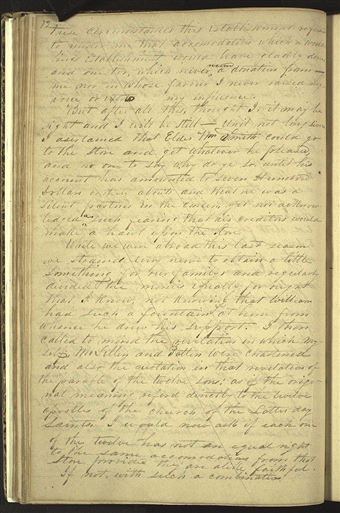 these circumstances this establishment refuse
to render me that accomodation which a world-
lings establishment would have gladly done
and one too, which never received a donation from
me nor in whose favor I never raised my
voice or exerted my influence.
But after all this, thought I, it may be
right and I will be still — Until not long since
I ascertained that Elder Wm Smith could go
to the store and get whatever he pleased,
and no one to say why do ye so, until his
account has amounted to seven Hundred
Dollars or there abouts and that he was a
silent partner in the concern, yet not acknow
ledged as such fearing that his creditors would
make a haul upon the Store.
While we were abroad this last season
we strained every nerve to obtain a little
something for our familys and regularly
divided the monies equally for aught
that I know, not knowing that William
had such a fountain at home from
whence he drew his support. I then
called to mind the revelation in which my
self, McLellen and Patten were chastened
and also the quotation in that revelation of
the parable of the twelve sons; as if the origi-
nal meaning referd directly to the twelve
apostles of the church of the Latter day
Saints. I would now ask if each one
of the twelve has not an equal right
to the same accomodations from that
Store provided they are alike faithful.
If not, with such a combination